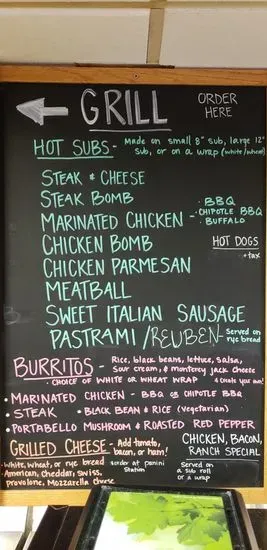 GRILL
ORDER
HERE
HOT SUBS - Made on small 8" sub, large 12"
sub, or on a wrap (white/wheat)
STEAK & CHEESE
STEAK BOMB
MARINATED CHICKEN -
· BBQ
· CHIPOTLE BBQ
· BUFFALO
CHICKEN BOMB
HOT DOGS
+tax
CHICKEN PARMESAN
MEATBALL
SWEET ITALIAN SAUSAGE
PASTRAMI/REUBEN - Served on
rye bread
BURRITOS - Rice, black beans, lettuce, salsa,
sour cream, & monterey jack cheese
· CHOICE OF WHITE OR WHEAT WRAP
Create your own!
• MARINATED CHICKEN - BBQ or CHIPOTLE BBQ
• STEAK
• BLACK BEAN & RICE (vegetarian)
• PORTABELLO MUSHROOM & ROASTED RED PEPPER
GRILLED CHEESE - Add tomato,
bacon, or ham!
· White, wheat, or rye bread
· American, cheddar, swiss,
provolone, Mozzarella cheese
*order at panini
station
CHICKEN, BACON,
RANCH SPECIAL
Served on
a sub roll
or a wrap